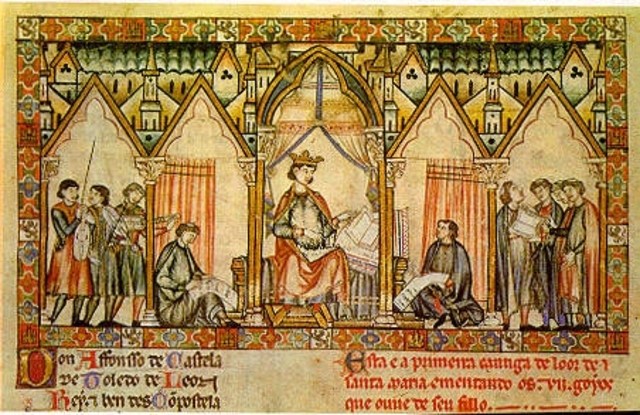 Don Affonsso de Castela
de Toledo de Leon
Rey e ben des Cõpostela
Esta e a primeira cantiga de loor de
santa maria ementando os .vij. goyos
que ouue de seu fillo.